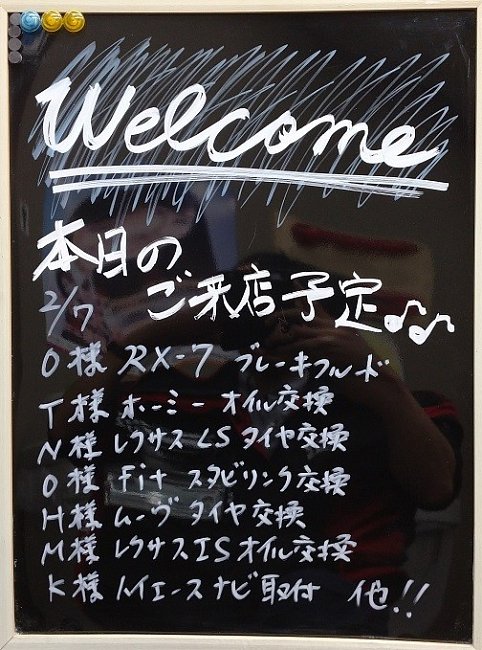 Welcome
本日の
2/7 ご来店予定♪♪
O様 RX-7 ブレーキフルード
T様 ホーミー オイル交換
N様 レクサスLS タイヤ交換
O様 Fit スタビリンク交換
H様 ムーヴ タイヤ交換
M様 レクサスIS オイル交換
K様 ハイエース ナビ取付 他!!